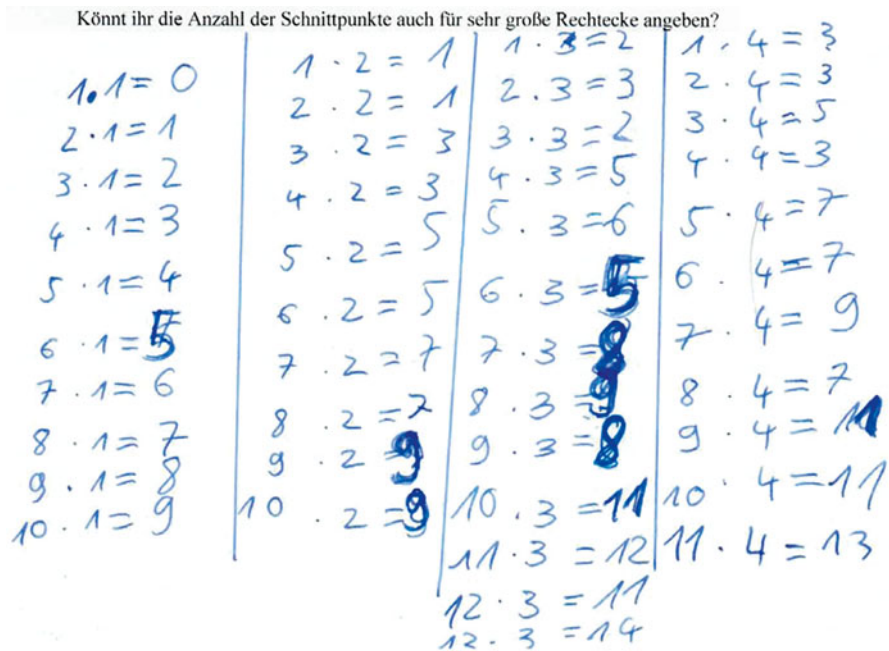 Könnt ihr die Anzahl der Schnittpunkte auch für sehr große Rechtecke angeben?
1 · 1 = 0
2 · 1 = 1
3 · 1 = 2
4 · 1 = 3
5 · 1 = 4
6 · 1 = 5
7 · 1 = 6
8 · 1 = 7
9 · 1 = 8
10 · 1 = 9
1 · 2 = 1
2 · 2 = 1
3 · 2 = 3
4 · 2 = 3
5 · 2 = 5
6 · 2 = 5
7 · 2 = 7
8 · 2 = 7
9 · 2 = 9
10 · 2 = 9
1 · 3 = 2
2 · 3 = 3
3 · 3 = 2
4 · 3 = 5
5 · 3 = 6
6 · 3 = 5
7 · 3 = 8
8 · 3 = 9
9 · 3 = 8
10 · 3 = 11
11 · 3 = 12
12 · 3 = 11
12 · 3 = 14
1 · 4 = 3
2 · 4 = 3
3 · 4 = 5
4 · 4 = 3
5 · 4 = 7
6 · 4 = 7
7 · 4 = 9
8 · 4 = 7
9 · 4 = 11
10 · 4 = 11
11 · 4 = 13